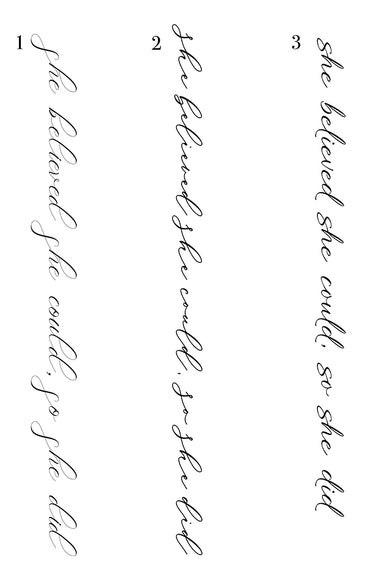 1
she believed she could, so she did
2
she believed she could, so she did
3
she believed she could, so she did